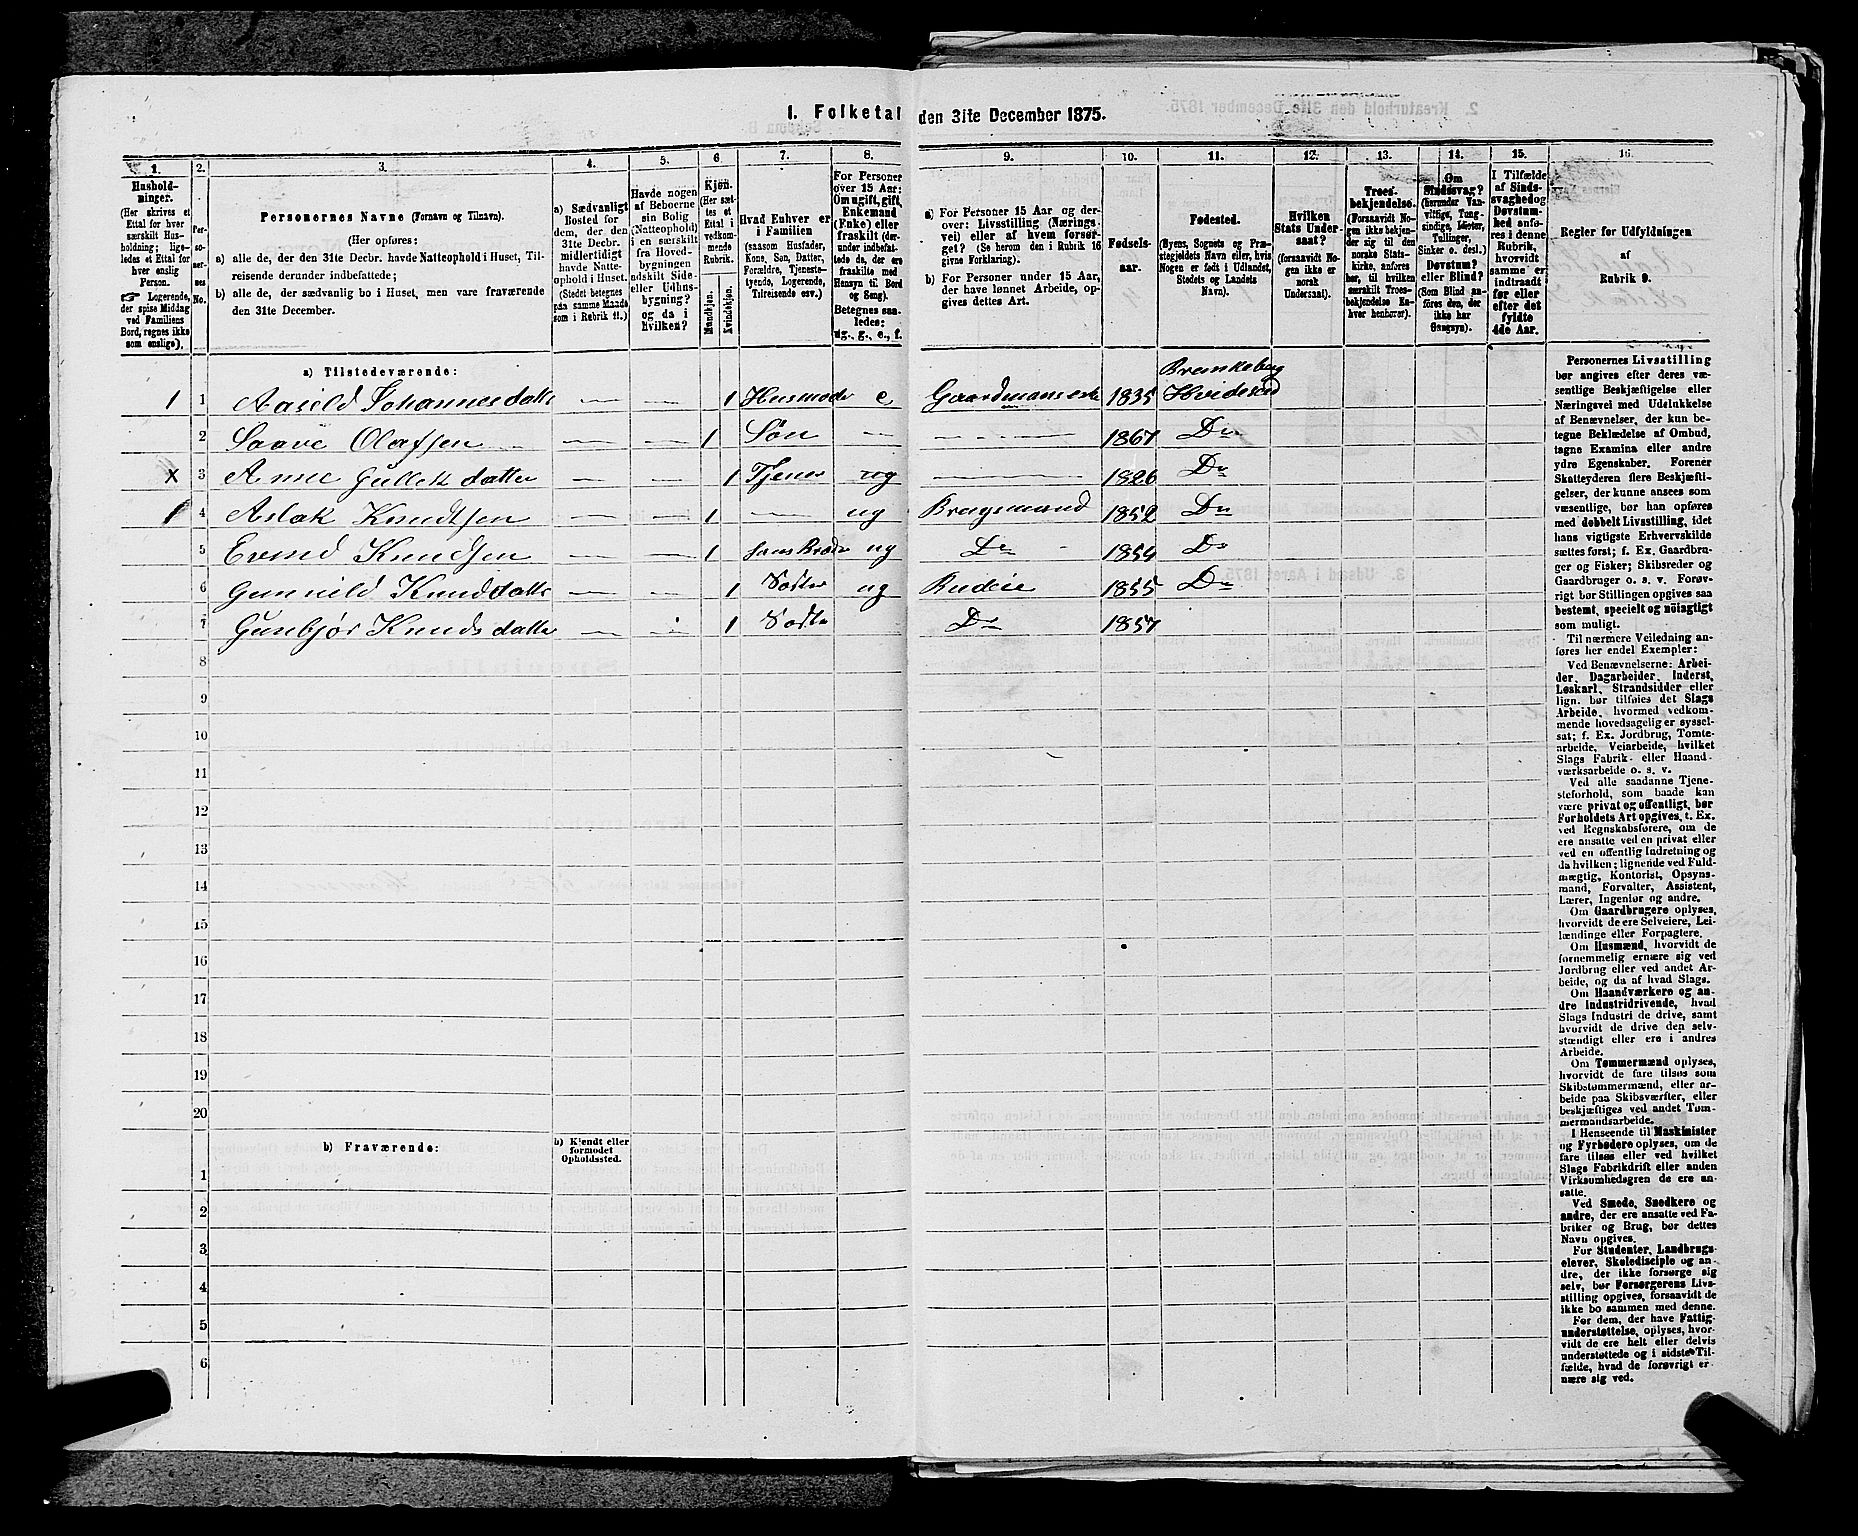 1. Folketal den 31te December 1875.
1. 2. 3. 4. 5. 6. 7. 8. 9. 10. 11. 12. 13. 14. 15. 16.
Hushold-
ninger.
(Her skrives et
Ettal for hver
særskilt Hus-
holdning; lige-
ledes et Ettal for
hver enslig
Person.
☞ Logerende,
der spise Middag
ved Familiens
Bord, regnes ikke
som enslige).
Per-
soner-
nes-
No.
Personernes Navne (Fornavn og Tilnavn).
(Her opføres:
a) alle de, der den 31te Decbr. havde Natteophold i Huset, Til-
reisende derunder indbefattede;
b) alle de, der sædvanlig bo i Huset, men vare fraværende
den 31te December.
a) Sædvanligt
Bosted for
dem, der den
31te Decbr.
midlertidigt
havde Natte-
ophold i Huset.
(Stedet betegnes
paa samme Maade
som i Rubrik 11.)
Havde nogen
af Beboerne
sin Bolig
(Natteophold)
i en særskilt
fra Hoved-
bygningen
adskilt Side-
eller Udhus-
bygning?
og da i
hvilken?
Kjøn.
(Her sæt-
tes et
Ettal i
vedkom-
mende
Rubrik.
Mandkjøn.
Kvindekjøn.
Hvad Enhver er
i Familien
(saasom Husfader,
Kone, Søn, Datter,
Forældre, Tjeneste-
tyende, Logerende,
Tilreisende osv.)
For Personer
over 15 Aar:
Om ugift, gift,
Enkemand
(Enke) eller
fraskilt (der-
under indbefat-
tede de, der ere
fraskilte med
Hensyn til Bord
og Seng).
Betegnes saa-
ledes:
ug., g., e., f.
a) For Personer 15 Aar og der-
over: Livsstilling (Nærings-
vei) eller af hvem forsør-
get? (Se herom den i Rubrik 16
givne Forklaring).
b) For Personer under 15 Aar,
der have lønnet Arbeide, op-
gives dettes Art.
Fødsels-
aar.
Fødested.
(Byens, Sognets og Præ-
stegjeldets Navn eller, hvis
Nogen er født i Udlandet,
Stedets og Landets
Navn).
Hvilken
Stats Under-
saat?
(forsaavidt No-
gen ikke er
norsk
Undersaat).
Troes-
bekjendelse.
(Forsaavidt No-
gen ikke bekjen-
der sig til den
norske Stats-
kirke, anføres
her, til hvilken
særskilt Troes-
bekjendelse En-
hver henhører).
Om
Sindssvag?
(herunder Van-
vittige, Tung-
sindige, Idioter,
Tullinger,
Sinker o. desl.)
Døvstum?
eller Blind?
(Som Blind an-
føres den, der
ikke har
Gangsyn).
I Tilfælde
af Sinds-
svaghed og
Døvstum-
hed anfø-
res i denne
Rubrik,
hvorvidt
samme er
indtraadt
før eller
efter det
fyldte
4de Aar.
Regler for Udfyldningen
af
Rubrik 9.
a) Tilstedeværende:
Brunkeberg
1 1 Aasild Johannesdatter — — 1 Husmoder e Gaardmansenke 1835 Hvidesød
2 Saave Olafsen — — 1 Søn — — 1867 Do
x 3 Anne Gullekdatter — — 1 Tjener ug — 1826 Do
1 4 Aslak Knudtsen — — 1 — ug Brugsmand 1852 Do
5 Evind Knudsen — — 1 ug Do 1854 Do
6 Gunvild Knuddatter — — 1 Søster ug Budeie 1855 Do
7 Gunbjør Knudsdatter — 1 Søster Do 1857
8
9
10
11
12
13
14
15
16
17
18
19
20
b) Fraværende:
b) Kjendt eller
formodet
Opholdssted.
1
2
3
4
5
6
Personernes Livsstilling
bør angives efter deres væ-
sentlige Beskjæftigelse eller
Næringsvei med Udelukkelse
af Benævnelser, der kun be-
tegne Beklædelse af Ombud,
tagne Examina eller andre
ydre Egenskaber. Forener
Skatteyderen flere Beskjæfti-
gelser, der kunne ansees som
væsentlige, bør han opføres
med dobbelt Livsstilling, idet
hans vigtigste Erhvervskilde
sættes først; f. Ex. Gaardbru-
ger og Fisker; Skibsreder og
Gaardbruger o. s. v. Forøv-
rigt bør Stillingen opgives saa
bestemt, specielt og nöiagtigt
som muligt.
Til nærmere Veiledning an-
føres her endel Exempler:
Ved Benævnelserne: Arbei-
der, Dagarbeider, Inderst,
Løskarl, Strandsidder eller
lign. bør tilføies det Slags
Arbeide, hvormed vedkom-
mende hovedsagelig er syssel-
sat; f. Ex. Jordbrug, Tomte-
arbeide, Veiarbeide, hvilket
Slags Fabrik- eller Haand-
værksarbeide o. s. v.
Ved alle saadanne Tjene-
steforhold, som baade kan
være privat og offentligt, bør
Forholdets Art opgives, t. Ex.
ved Regnskabsførere, om de
ere ansatte ved en privat eller
ved en offentlig Indretning og
da hvilken; lignende ved Fuld-
mægtig, Kontorist, Opsyns-
mand, Forvalter, Assistent,
Lærer, Ingeniør og andre.
Om Gaardbrugere oplyses,
hvorvidt de ere Selveiere, Lei-
lændinge eller Forpagtere.
Om Husmænd, hvorvidt de
fornemmelig ernære sig ved
Jordbrug eller ved andet Ar-
beide, og da af hvad Slags.
Om Haandværkere og an-
dre industridrivende, hvad
Slags Industri de drive, samt
hvorvidt de drive den selv-
stændigt eller ere i andres
Arbeide.
Om Tømmermænd oplyses,
hvorvidt de fare tilsøs som
Skibstømmermænd, eller ar-
beide paa Skibsværfter, eller
beskjæftiges ved andet Tøm-
mermandsarbeide.
I Henseende til Maskinister
og Fyrbødere oplyses, om de
fare tilsøs eller ved hvilket
Slags Fabrikdrift eller anden
Virksomhedsgren de ere an-
satte.
Ved Smede, Snedkere og
andre, der ere ansatte ved Fa-
briker og Brug, bør dettes
Navn opgives.
For Studenter, Landbrugs-
elever, Skoledisciple og an-
dre, der ikke forsørge sig
selv, bør Forsørgerens Livs-
stilling opgives, forsaavidt de
ikke bo sammen med denne.
For dem, der have Fattig-
understøttelse, oplyses, hvor-
vidt de ere helt eller delvis
understøttede og i sidste Til-
fælde, hvad de forøvrigt er-
nære sig ved.